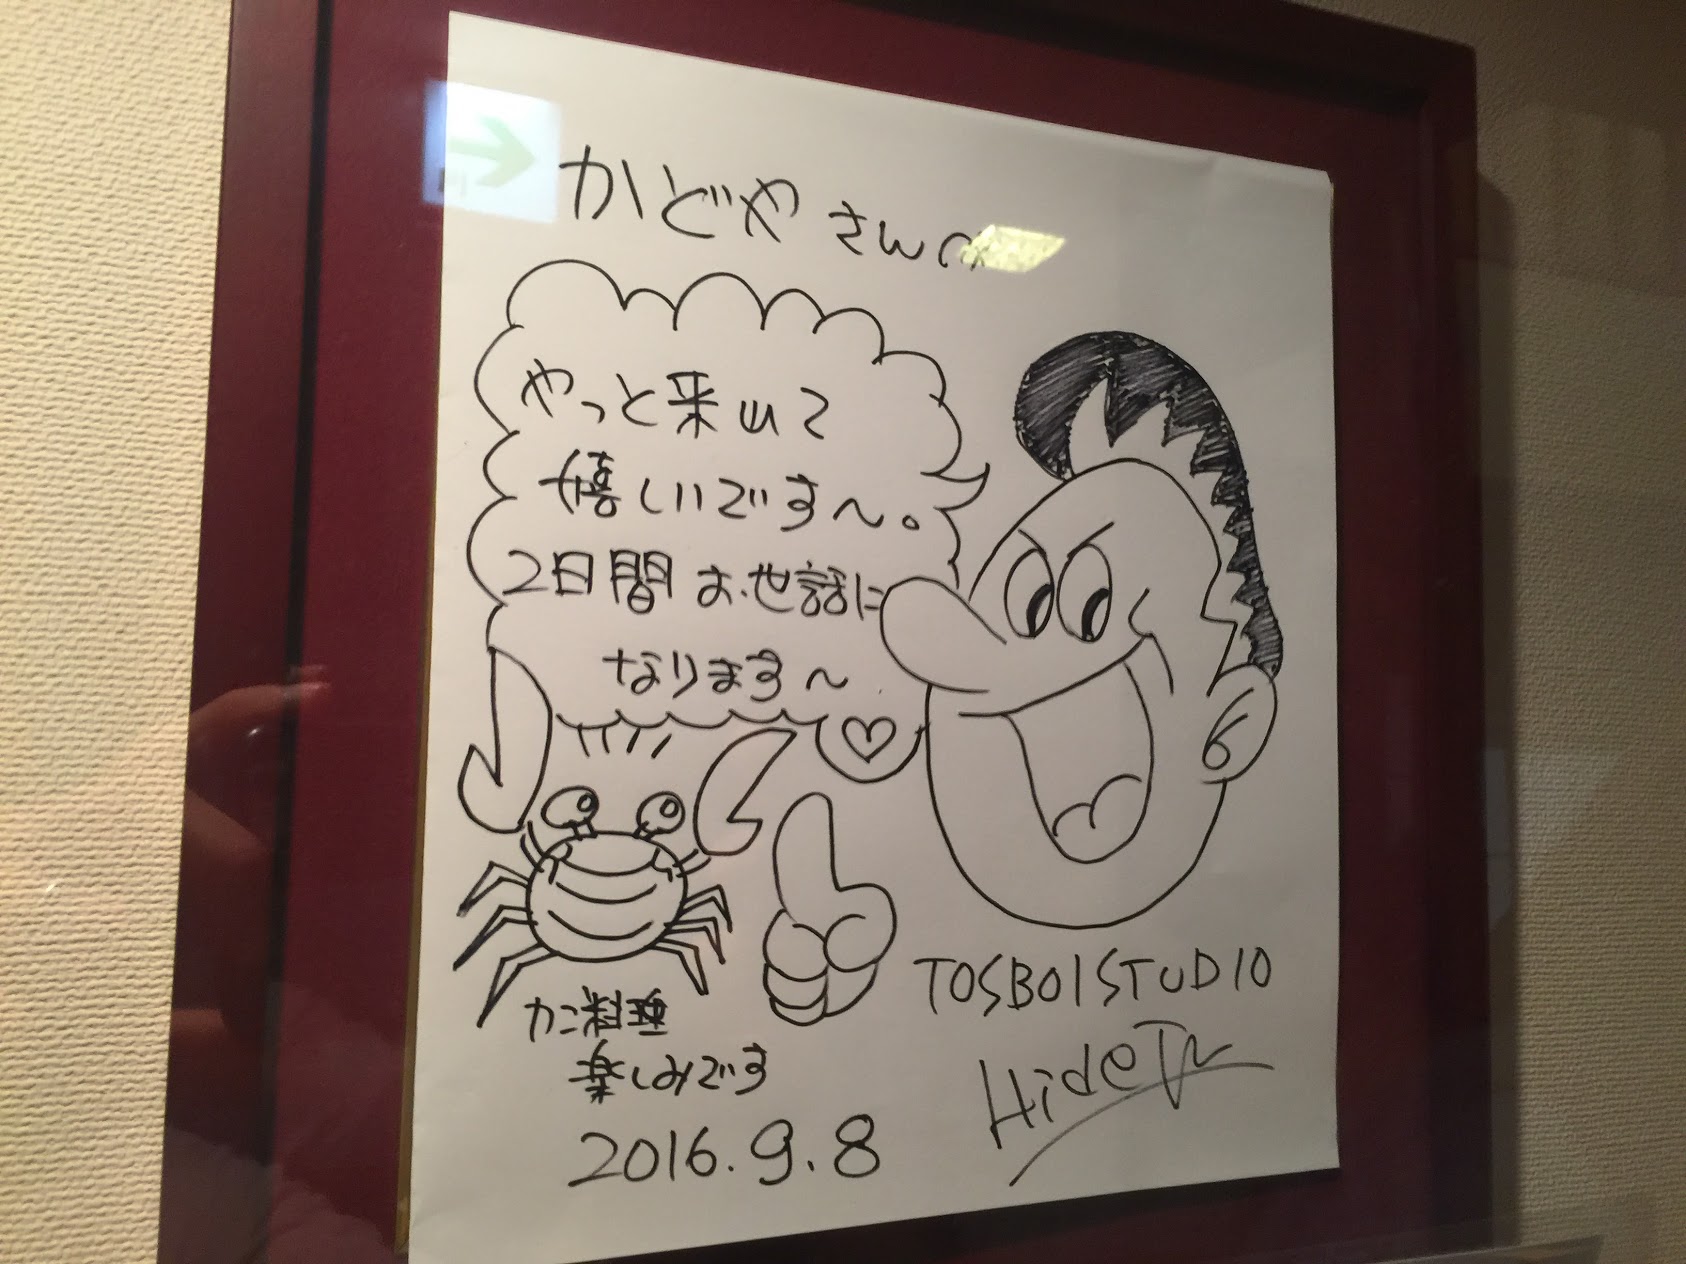 かどやさんへ
やっと来れて
嬉しいです〜。
2日間お世話に
なります〜
カニ料理
楽しみです
2016.9.8
TOSBOISTUDIO